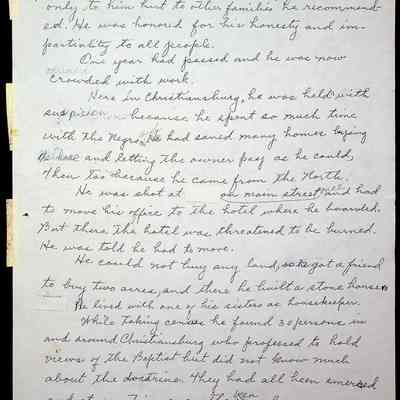 only to him but to other families he recommend-
ed. He was honored for his honesty and im-
partiality to all people.
One year had passed and he was now
crowded with work.
Here in Christiansburg, he was held with
suspicion, because he spent so much time
with the Negro, He had saved many homes buying
and letting the owner pay as he could,
Then too because he came from the North.
He was shot at on main street and had
to move his office to the hotel where he boarded.
But there the hotel was threatened to be burned.
He was told he had to move.
He could not buy any land, so he got a friend
to buy two acres, and there he built a stone house
He lived with one of his sisters as housekeeper.
While taking census he found 30 persons in
and around Christiansburg who professed to hold
views of the Baptist but did not know much
about the doctrine. They had all been emersed